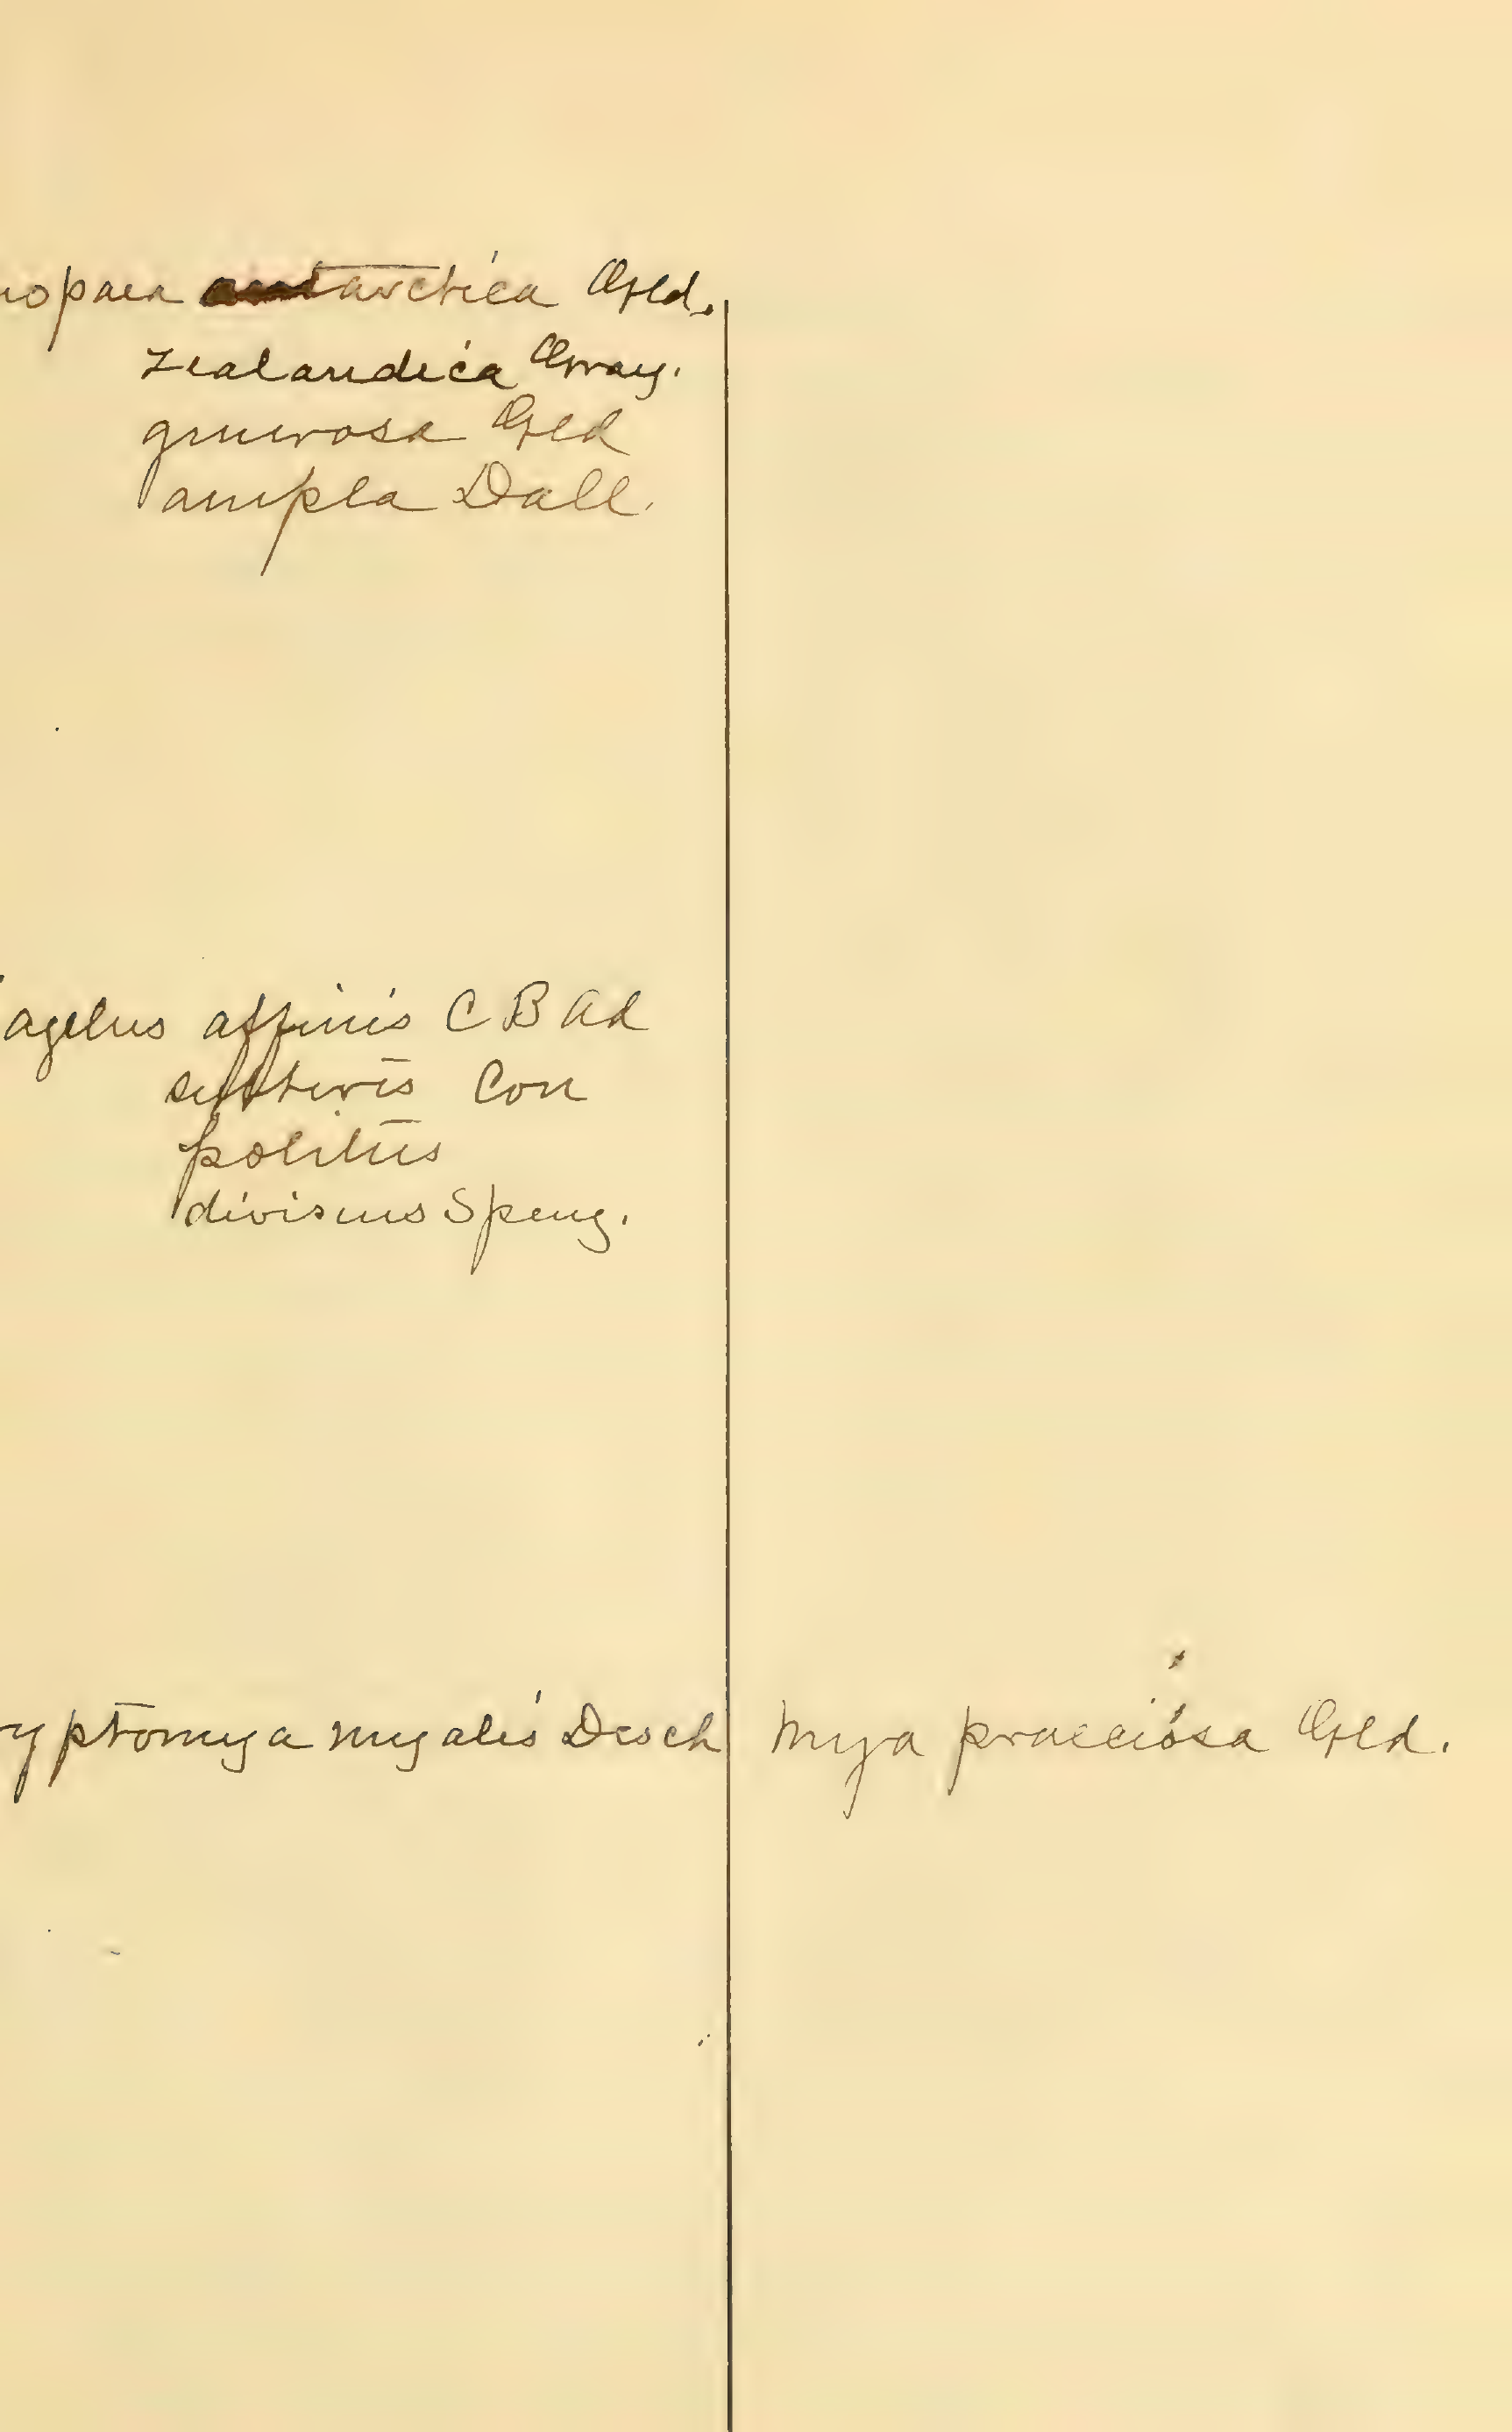 nopaea antarctica Gld.
zealandica Gray.
generosa Gld
ampla Dall.
agelus affinis C B Ad
subteres Con
politus
divisus Speng.
ryptomya mysalis Desch Mya praecisa Gld.